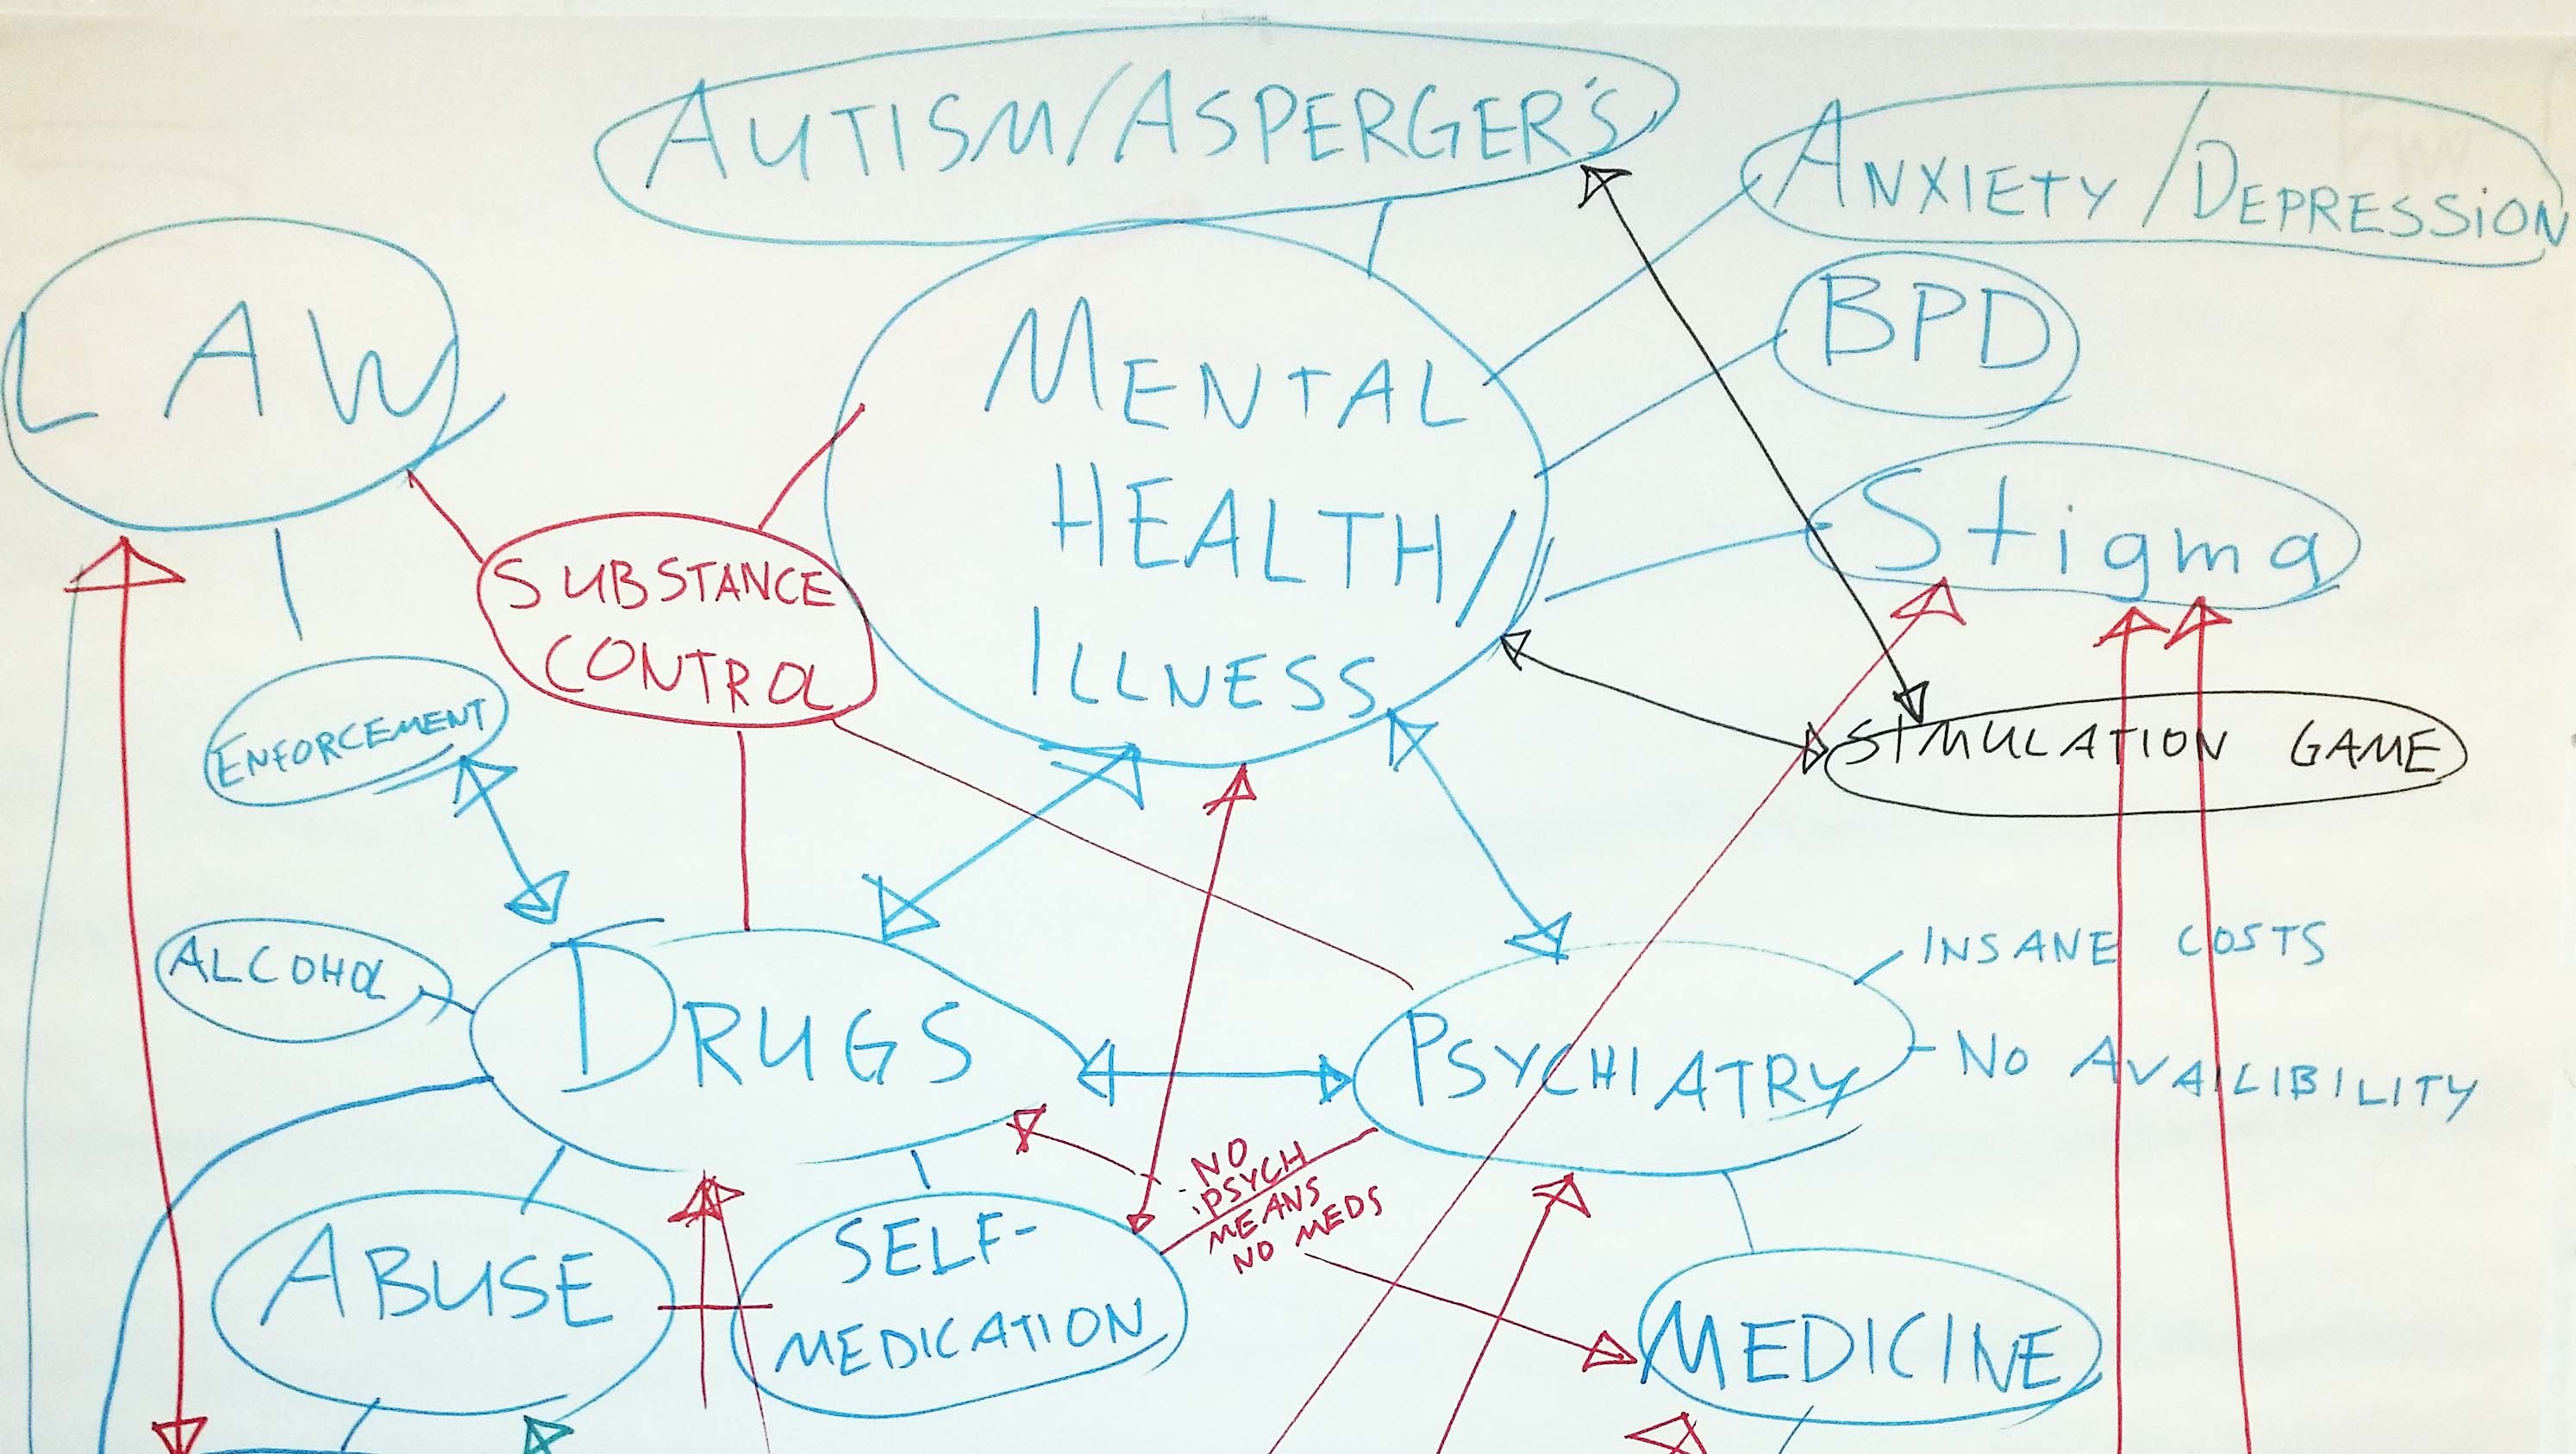 AUTISM/ASPERGER'S
ANXIETY/DEPRESSION
LAW
BPD
MENTAL
HEALTH/
ILLNESS
Stigma
SUBSTANCE
CONTROL
ENFORCEMENT
STIMULATION GAME
ALCOHOL
DRUGS
PSYCHIATRY
INSANE COSTS
- NO AVAILIBILITY
NO
PSYCH
MEANS
NO MEDS
ABUSE
SELF-
MEDICATION
MEDICINE